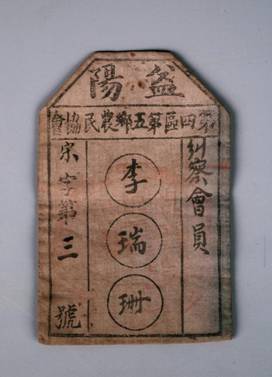 益陽
第四區第五鄉農民協會
糾察會員
李瑞珊
宋字第三號